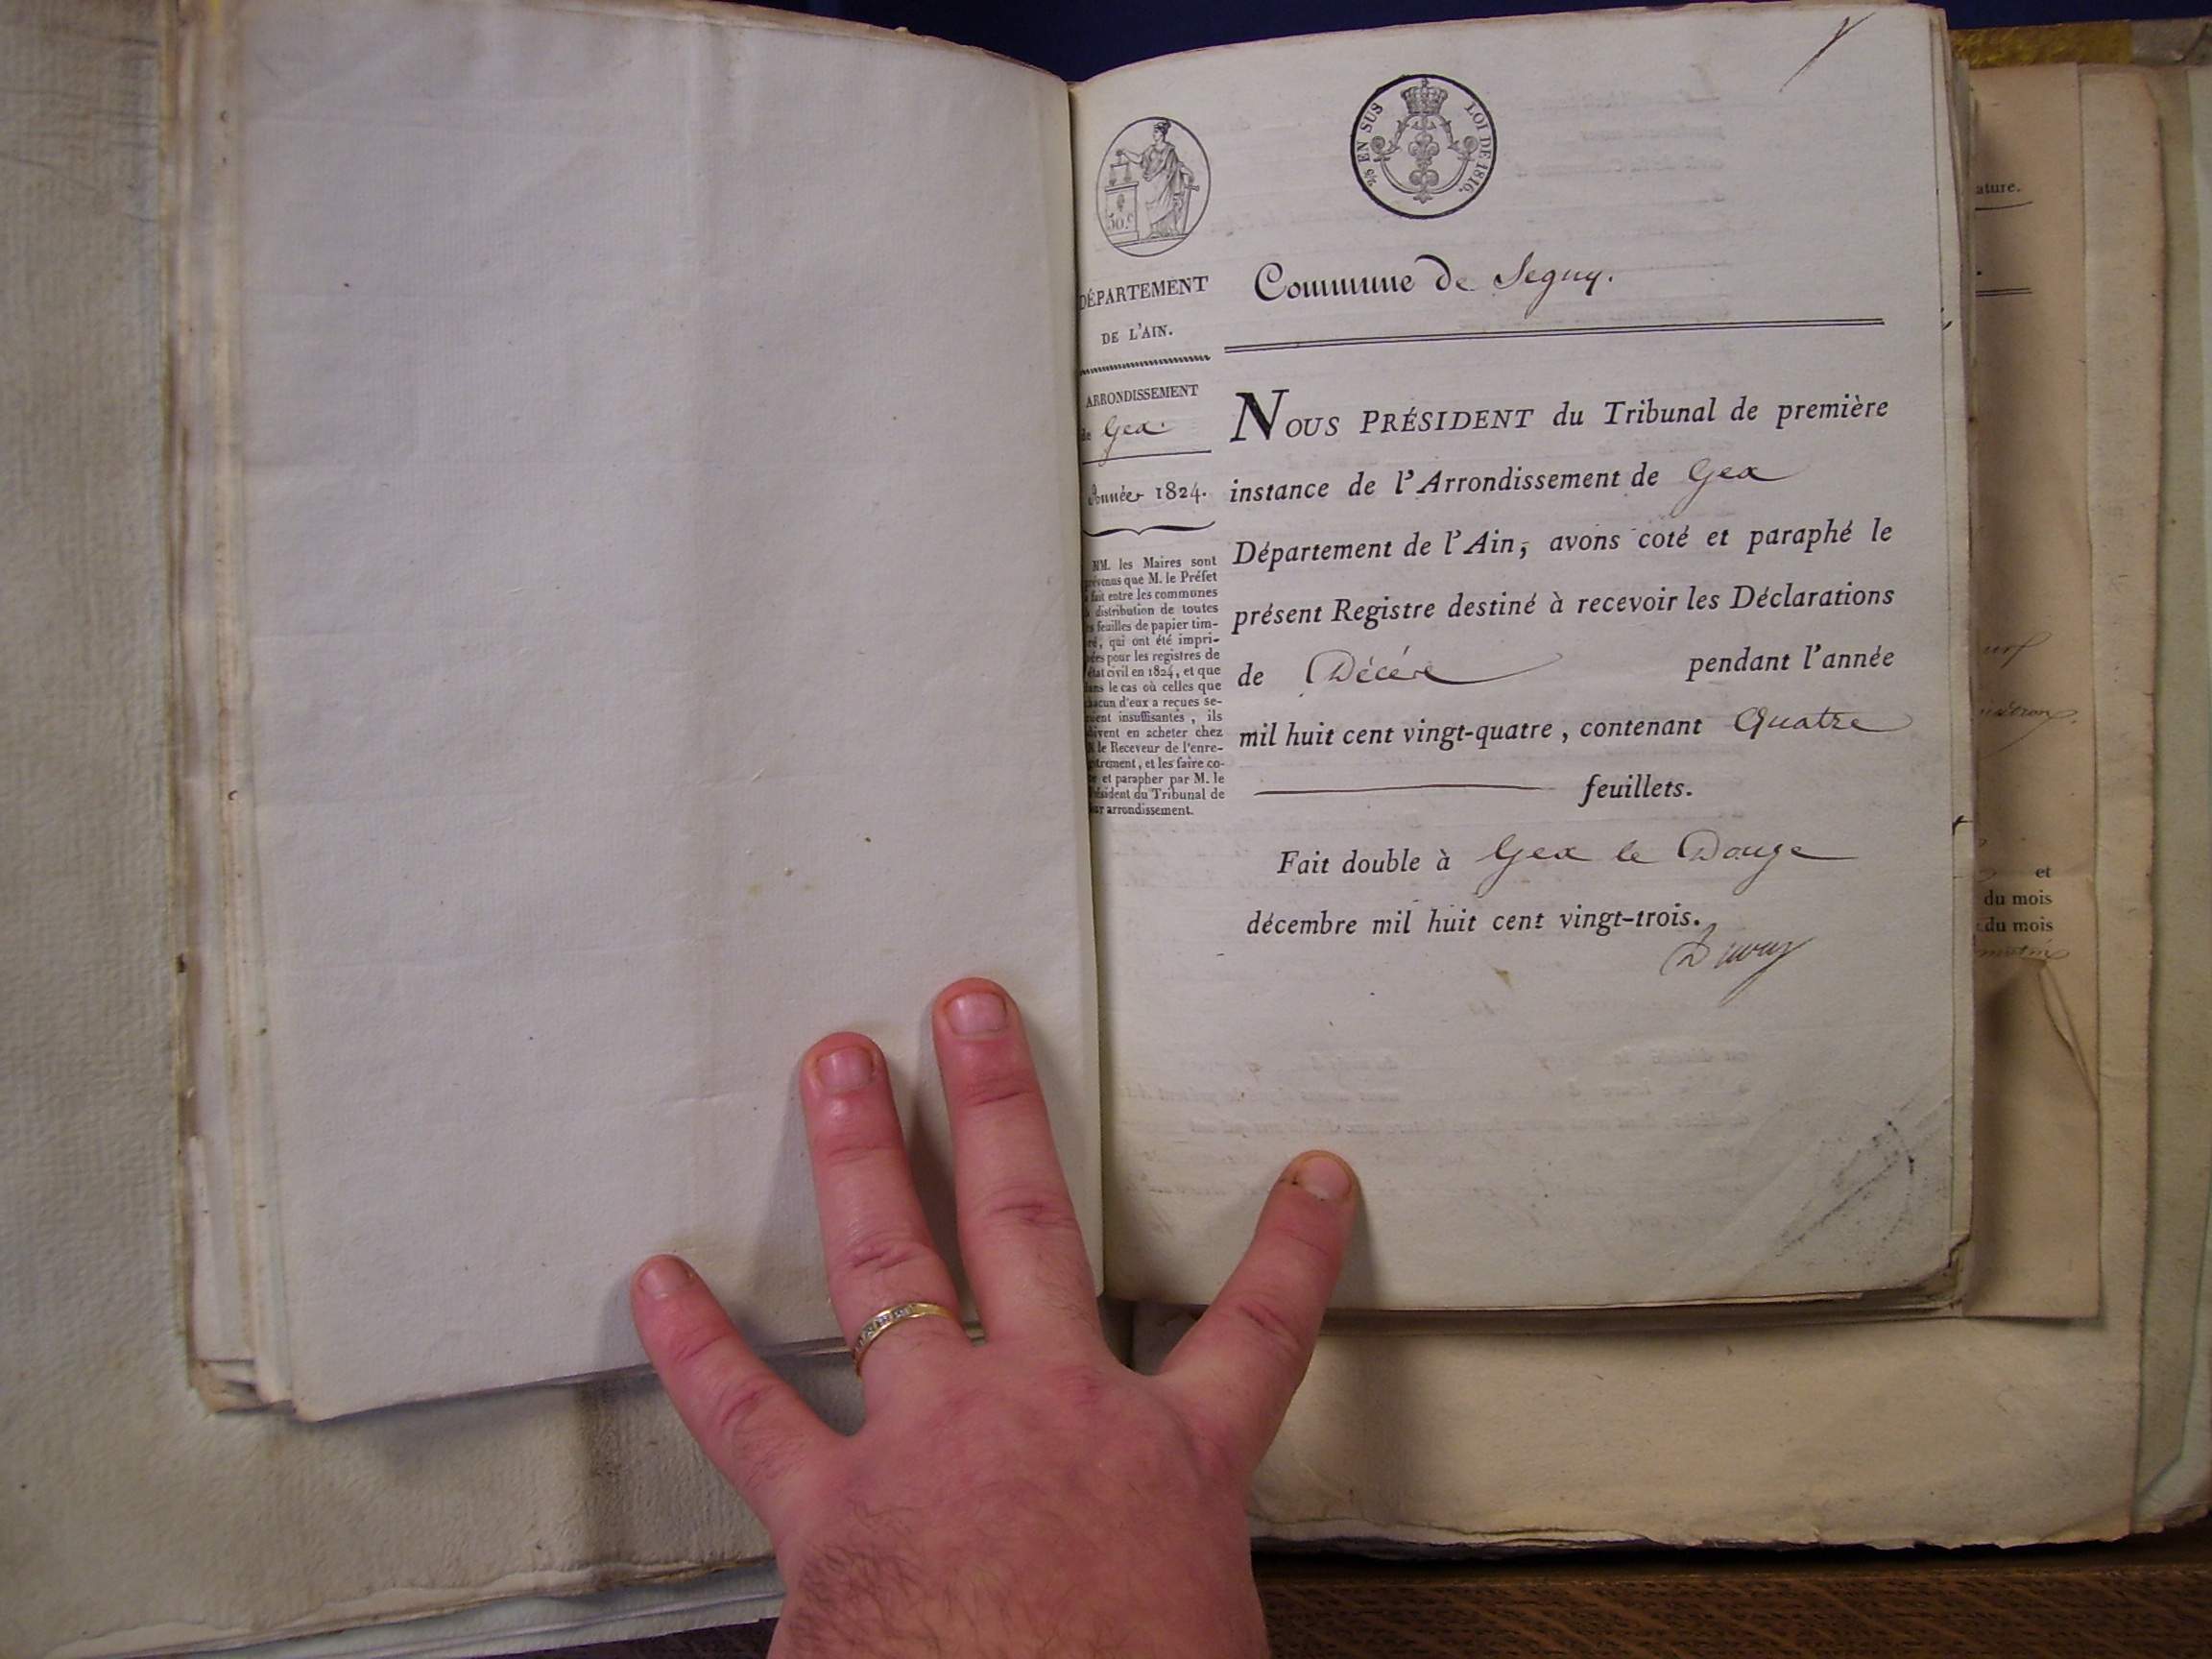 2/5 EN SUS LOI DE 1816.
50.c
DÉPARTEMENT
DE L'AIN.
ARRONDISSEMENT
de Gex
Année 1824.
MM. les Maires sont
prévenus que M. le Préfet
a fait entre les communes
la distribution de toutes
les feuilles de papier tim-
bré, qui ont été impri-
mées pour les registres de
l'état civil en 1824, et que
dans le cas où celles que
chacun d'eux a reçues se-
roient insuffisantes, ils
doivent en acheter chez
M. le Receveur de l'enre-
gistrement, et les faire co-
ter et parapher par M. le
Président du Tribunal de
leur arrondissement.
Commune de Segny.
NOUS PRÉSIDENT du Tribunal de première
instance de l'Arrondissement de Gex
Département de l'Ain, avons coté et paraphé le
présent Registre destiné à recevoir les Déclarations
de Décés pendant l'année
mil huit cent vingt-quatre, contenant Quatre
feuillets.
Fait double à Gex le Douze
décembre mil huit cent vingt-trois.
ature.
et
du mois
du mois